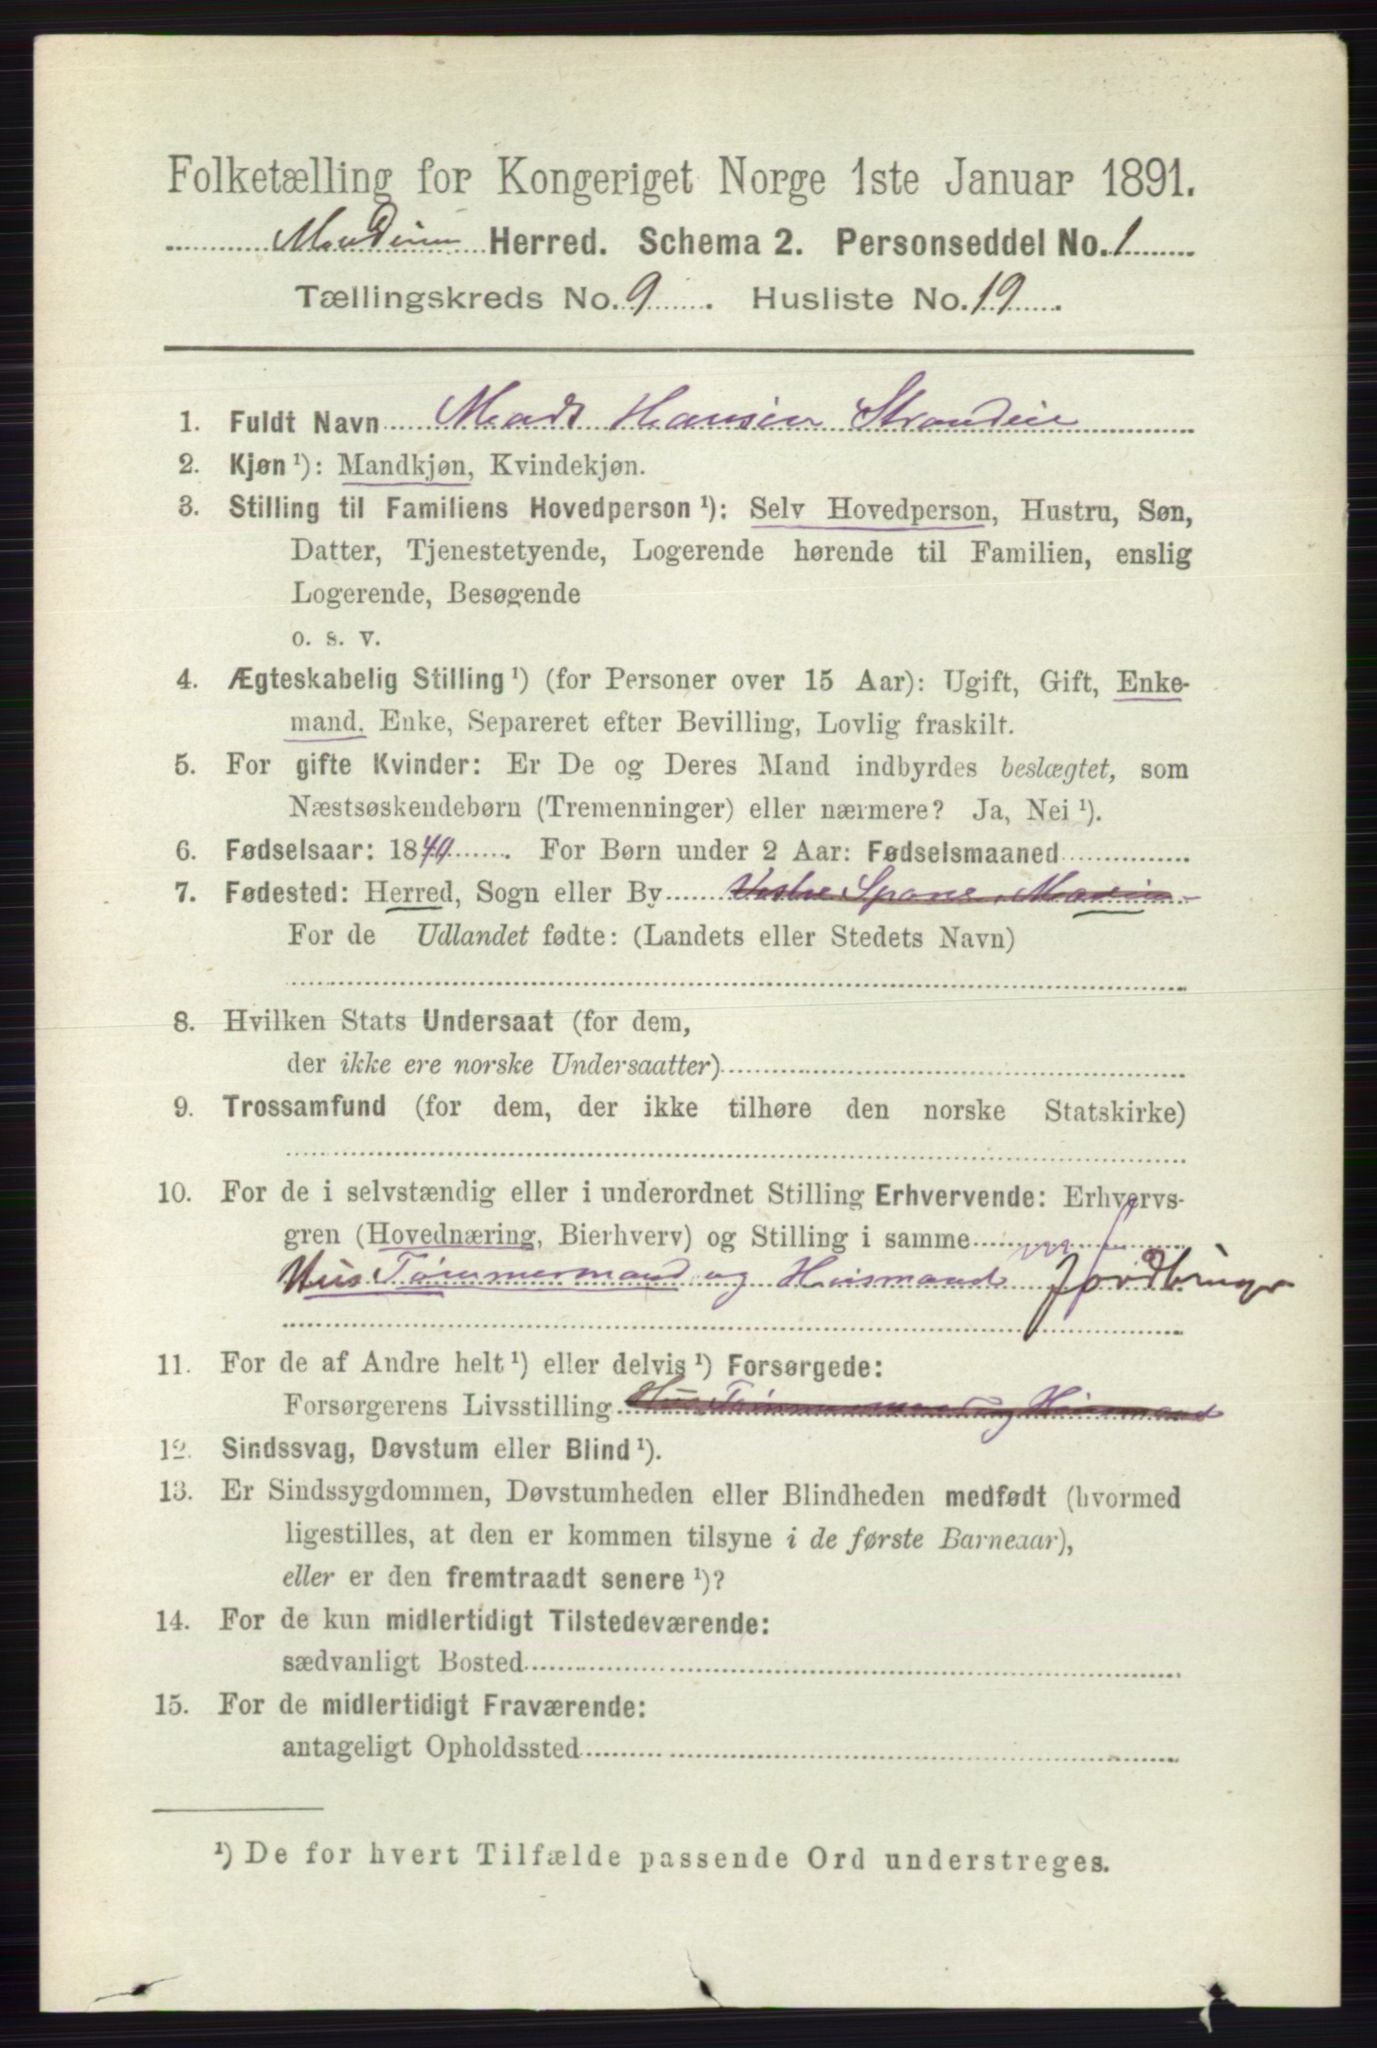 Folketælling for Kongeriget Norge 1ste Januar 1891.
Modum Herred. Schema 2. Personseddel No. 1
Tællingskreds No. 9. Husliste No. 19.
1. Fuldt Navn Mads Hansen Strandeie
2. Kjøn ¹): Mandkjøn, Kvindekjøn.
3. Stilling til Familiens Hovedperson ¹): Selv Hovedperson, Hustru, Søn,
Datter, Tjenestetyende, Logerende hørende til Familien, enslig
Logerende, Besøgende
o. s. v.
4. Ægteskabelig Stilling ¹) (for Personer over 15 Aar): Ugift, Gift, Enke-
mand, Enke, Separeret efter Bevilling, Lovlig fraskilt.
5. For gifte Kvinder: Er De og Deres Mand indbyrdes beslægtet, som
Næstsøskendebørn (Tremenninger) eller nærmere? Ja, Nei ¹).
6. Fødselsaar: 1849. For Børn under 2 Aar: Fødselsmaaned
7. Fødested: Herred, Sogn eller By Vestre Spone, Modum
For de Udlandet fødte: (Landets eller Stedets Navn)
8. Hvilken Stats Undersaat (for dem,
der ikke ere norske Undersaatter)
9. Trossamfund (for dem, der ikke tilhøre den norske Statskirke)
10. For de i selvstændig eller i underordnet Stilling Erhvervende: Erhvervs-
gren (Hovednæring, Bierhverv) og Stilling i samme
Hus Tømmermand og Husmand m/ Jordbrug
11. For de af Andre helt ¹) eller delvis ¹) Forsørgede:
Forsørgerens Livsstilling Hus Tømmermand og Husmand
12. Sindssvag, Døvstum eller Blind ¹).
13. Er Sindssygdommen, Døvstumheden eller Blindheden medfødt (hvormed
ligestilles, at den er kommen tilsyne i de første Barneaar),
eller er den fremtraadt senere ¹)?
14. For de kun midlertidigt Tilstedeværende:
sædvanligt Bosted
15. For de midlertidigt Fraværende:
antageligt Opholdssted
¹) De for hvert Tilfælde passende Ord understreges.